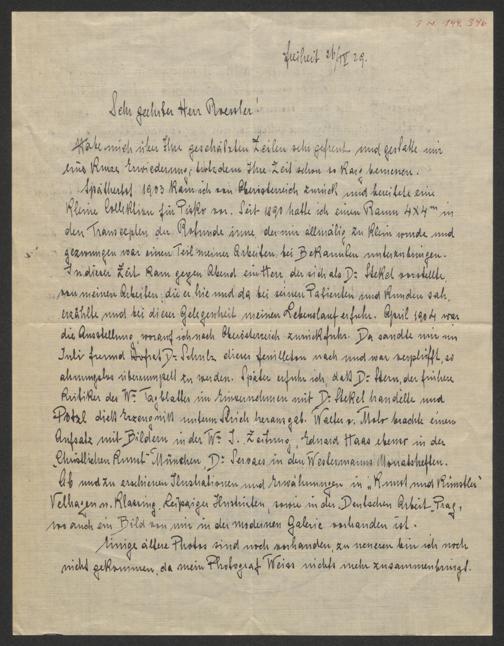 I N 144.346
Freiheit 26/IV 29.
Sehr geehrter Herr Roessler!
Habe mich über Ihre geschätzten Zeilen sehr gefreut und gestatte mir
eine kurze Erwiederung, trotzdem Ihre Zeit schon so karg bemessen.
Spätherbst 1903 kam ich von Oberösterreich zurück und bereitete eine
kleine Collektion für Pisko vor. Seit 1890 hatte ich einen Raum 4x4m in
den Transcepten der Rotunde inne der mir allmälig zu klein wurde und
gezwungen war einen Teil meiner Arbeiten bei Bekannten unterzubringen.
In dieser Zeit kam gegen Abend ein Herr der sich als Dr Stekel vorstellte,
von meinen Arbeiten, die er hie und da bei seinen Patienten und Kunden sah,
erzählte und bei dieser Gelegenheit meinen Lebenslauf erfuhr. April 1904 war
die Ausstellung, worauf ich nach Oberösterreich zurückfuhr. Da sandte mir im
Juli Freund Hofrat Dr Schulz dieses Feuilleton nach und war verblüfft, so
ahnungslos überrumpelt zu werden. Später erfuhr ich, daß Dr Stern, der frühere
Kritiker des Wr Tagblattes im Einvernehmen mit Dr Stekel handelte und
Pötzl dieß Erzeugniß unterm Strich herausgab. Walter v. Molo brachte einen
Aufsatz mit Bildern in der Wr I. Zeitung, Eduard Haas ebenso in der
"Christlichen Kunst" München, Dr Servaes in den Westermanns Monatsheften.
Ab und zu erschienen Illustrationen und Erwähnungen in "Kunst und Künstler"
Velhagen u. Klassing, Leipziger Illustrirten, sowie in der Deutschen Arbeit, Prag,
wo auch ein Bild von mir in der modernen Galerie vorhanden ist.
Einige ältere Photos sind noch vorhanden, zu neueren bin ich noch
nicht gekommen, da mein Photograf Weiss nichts mehr zusammenbringt.